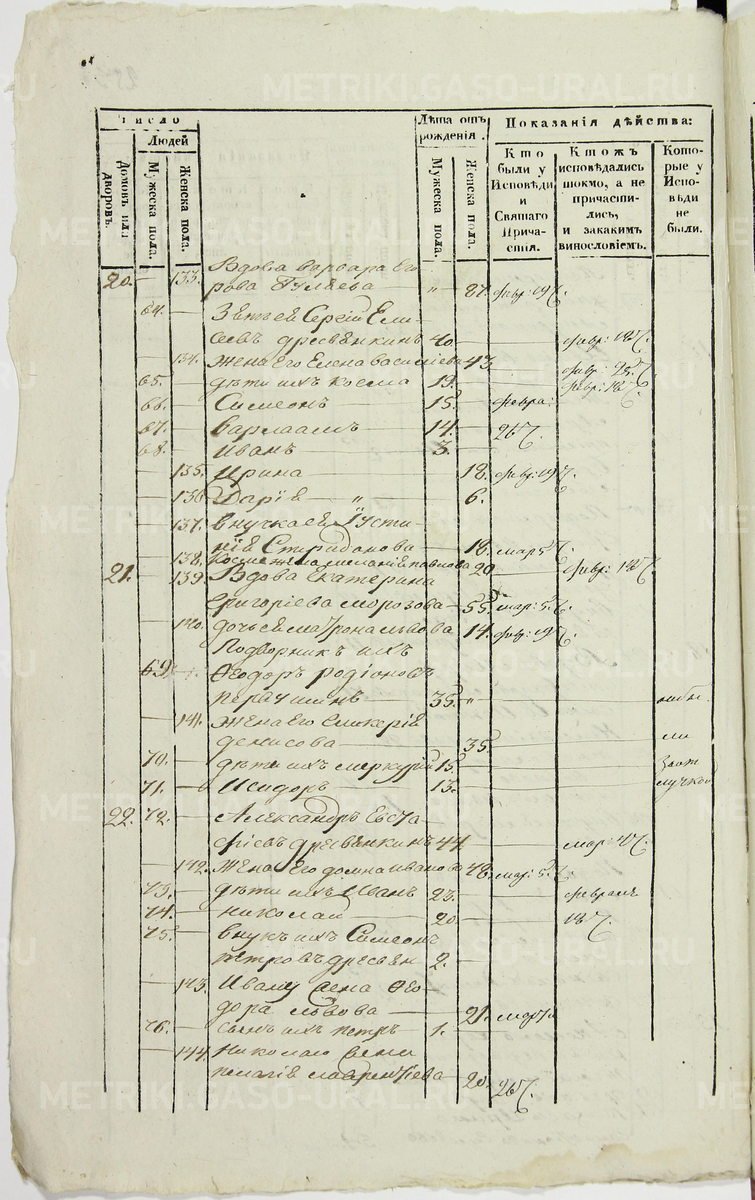 METRIKI.GASO-URAL.RU
Число
Людей
Домовъ или дворовъ.
Мужеска пола.
Женска пола.
Лѣта отъ рожденія.
Мужеска пола.
Женска пола.
Показанія дѣйства:
Кто были у Исповѣди и Святаго Причастія.
Ктожъ исповѣдались токмо, а не причастились, и закакимъ винословіемъ.
Которые у Исповѣди не были.
20. 133. Вдова Варвара Его
рова Гуляева " 87. февр: 19 ч.
64. Зять ея Сергій Ели
сеевъ Дресвянкинъ 40.
134. Жена его Елена Василиева 43
65. дѣти ихъ Косма
66. Симеонъ 15. февра:
67. Варлаамъ 14. 26 ч.
68. Иванъ 3.
135. Ирина 18. февр: 19 ч.
136 Дарія " 6.
137. внучка ея Іусти
нія Спиридонова 18. мар 5 ч.
138. Космы жена Павлова 20
21. 139. Вдова Екатерина
Григориева Морозова 55. мар: 5 ч.
140. дочь ея Матрона Львова 14. февр: 19 ч.
Подворникъ ихъ
69. Ѳеодоръ Родіоновъ
35. "
141. Жена его Гликерія
Денисова 35.
70. дѣти ихъ Меркурий 15.
71. Исидоръ 13.
22. 72. Александръ Евста
фіевъ Дресвянкинъ 44 мар: 4 ч.
142. Жена его Домна Иванова 48. мар: 5 ч.
73. дѣти ихъ Иванъ 23.
74. Николай 20.
75. внукъ ихъ Симеонъ
Петровъ Дресвян 2.
143. Ивану жена Ѳео
дора Львова 21.
76. сынъ ихъ Петръ 1.
144. Николаю жена
Пелагія Лаврентіева 20. 26 ч.